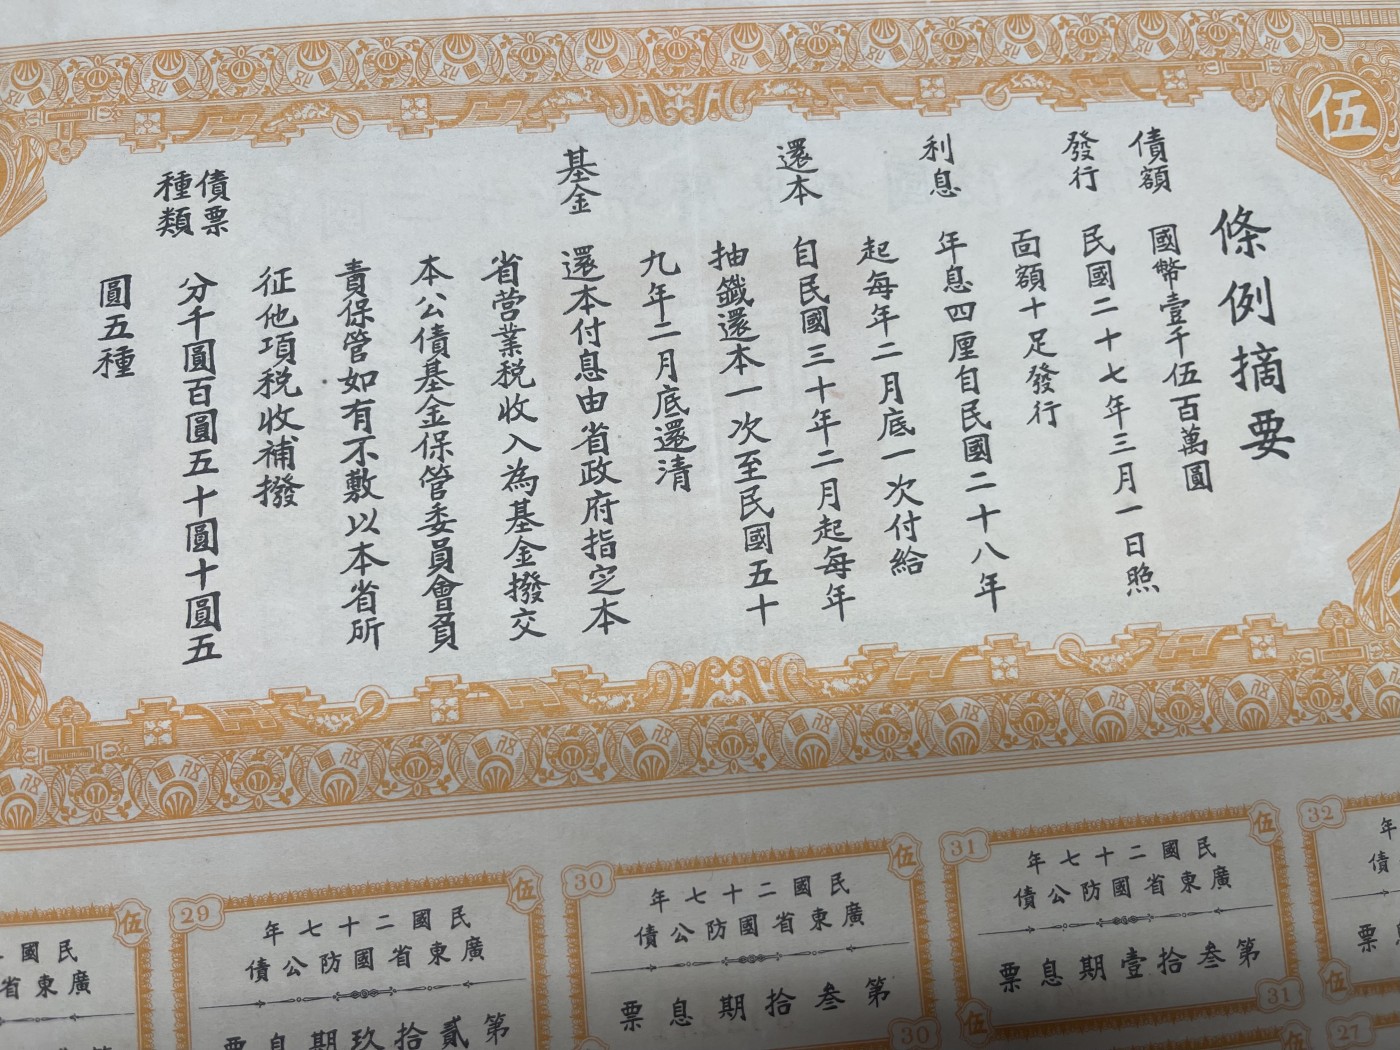 條例摘要
債額 國幣壹千伍百萬圓
發行 民國二十七年三月一日照
面額十足發行
利息 年息四厘自民國二十八年
起每年二月底一次付給
還本 自民國三十年二月起每年
抽籤還本一次至民國五十
九年二月底還清
基金 還本付息由省政府指定本
省营業税收入為基金撥交
本公債基金保管委員會負
責保管如有不敷以本省所
征他項税收補撥
債票
種類 分千圓百圓五十圓十圓五
圓五種
伍
32
年
債
票
31
伍
民國二十七年
廣東省國防公債
第叁拾壹期息票
伍
31
30
伍
民國二十七年
廣東省國防公債
第叁拾期息票
30
29
伍
民國二十七年
廣東省國防公債
第貳拾玖期息票
伍
民國
省東廣
27